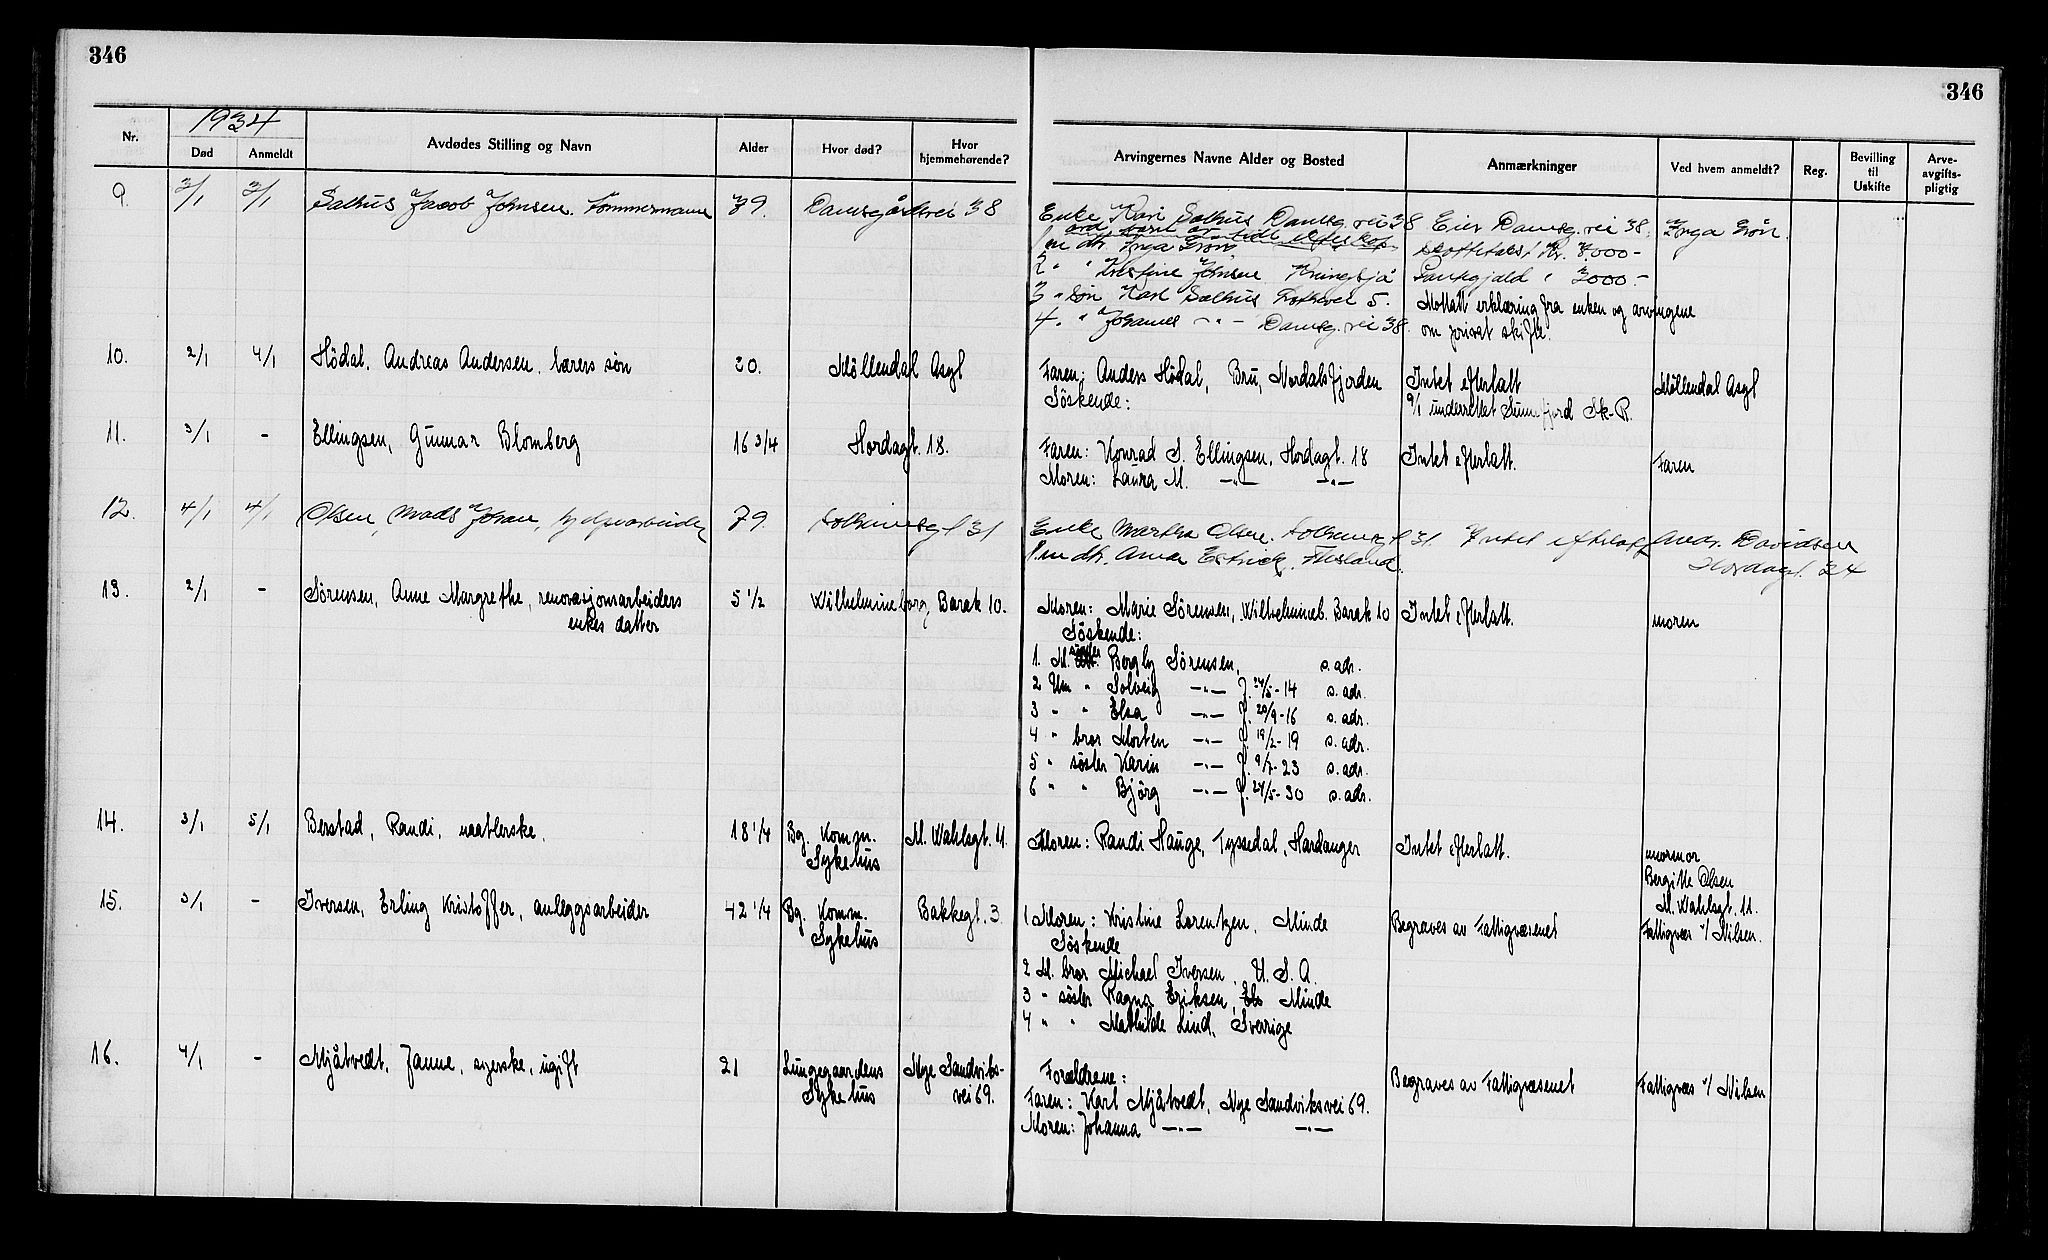 346
346
1934
Nr.
Død
Anmeldt
Avdødes Stilling og Navn
Alder
Hvor død?
Hvor hjemmehørende?
Arvingernes Navne Alder og Bosted
Anmærkninger
Ved hvem anmeldt?
Reg.
Bevilling til Uskifte
Arve-avgifts-pligtig
9. 2/1 3/1 Salhus Jacob Johnsen. Tømmermann 79. Damsgårdsvei 38
Enke Kari Salhus Damsg. vei 38
1 m dtr. Inga Grön
2 " " Kristine Johnsen Kringsjå
3 " sön Karl Salhus 5.
4. " Johannes -"- Damsg. vei 38.
Eier Damsg. vei 38.
skattetakst Kr. 8.000-
Pantegjæld " 3000.-
Mottatt erklæring fra enken og arvingene
om privat skifte.
Inga Grön.
10. 2/1 4/1 Hödal, Andreas Andersen, lærers søn 20. Möllendal Asyl
Faren: Anders Hödal, Bru, Nordalsfjorden
Söskende:
Intet efterlatt
9/1 underrettet Sunnfjord Sk-R.
Möllendal Asyl
11. 3/1 - Ellingsen, Gunnar Blomberg 16 3/4 Hordagt. 18.
Faren: Konrad S. Ellingsen, Hordagt. 18
Moren: Laura M. -"- -"-
Intet efterlatt.
Faren
12. 4/1 4/1 Olsen, Mads Johan, 79. 31
Enke Martha Olsen. 31.
1 m dtr. Anna
Intet efterlatt
Andr. Davidsen
Hordagt. 24
13. 2/1 - Sørensen, Anne Margrethe, renovasjonsarbeiders
enkes datter
5 1/2 Wilhelmineborg, Barak 10.
Moren: Marie Sörensen, Wilhelmineb. Barak 10
Söskende:
1. M. söster Bergly Sörensen, s. adr.
2 Um " Solveig -"- f. 24/5-14 s. adr.
3 " " Elsa -"- f. 20/9-16 s. adr.
4 " bror Morten -"- f. 19/2-19 s. adr.
5 " söster Karin -"- f. 9/7-23 s. adr.
6 " " Björg -"- f. 24/5-30 s. adr.
Intet efterlatt.
moren
14. 3/1 5/1 Berstad, Randi, naatlerske. 18 1/4 Bg. Komm.
Sykehus
M. Wahlsgt. 11.
Moren: Randi Hauge, Tyssedal, Hardanger
Intet efterlatt.
mormor
Bergitte Olsen
M. Wahlsgt. 11.
15. 3/1 - Iversen, Erling Kristoffer, anleggsarbeider 42 1/4 Bg. Komm.
Sykehus
Bakkegt. 3
1 Moren: Kristine Lorentzen, Minde
Söskende
2 M. bror Michael Iversen, U. S. A.
3 " söster Ragna Eriksen, Minde
4 " " Mathilde Lind, Sverige
Begraves av Fattigvæsenet
Fattigvæs v/ Nilsen.
16. 4/1 - Mjåtvedt, Janne, syerske, ugift 21 Lungegaardens
Sykehus
Nye Sandviks-
vei 69.
Forældrene:
Faren: Karl Mjåtvedt, Nye Sandviksvei 69.
Moren: Johanna -"- -"-
Begraves av Fattigvæsenet
Fattigvæs v/ Nilsen